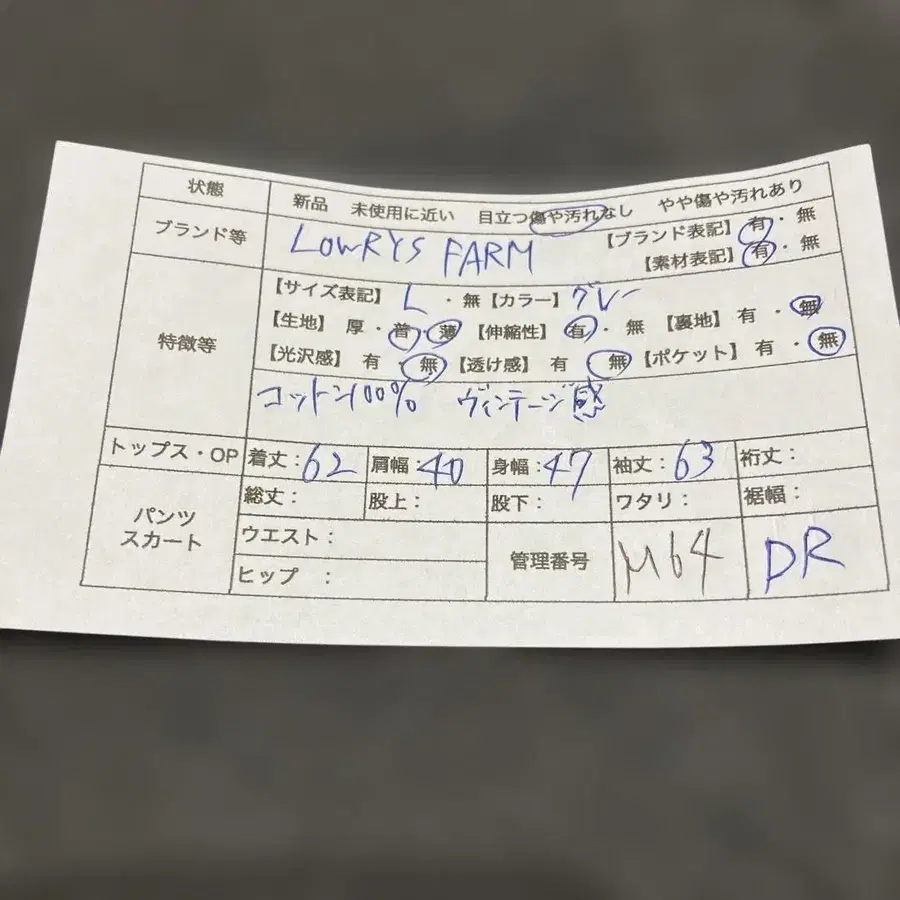 状態 新品 未使用に近い 目立つ傷や汚れなし やや傷や汚れあり
ブランド等 LOWRYS FARM 【ブランド表記】 有・無
【素材表記】 有・無
特徴等 【サイズ表記】 L ・無 【カラー】 グレー
【生地】 厚・普・薄 【伸縮性】 有・無 【裏地】 有・無
【光沢感】 有・無 【透け感】 有 無 【ポケット】 有・無
コットン100% ヴィンテージ感
トップス・OP 着丈:62 肩幅:40 身幅:47 袖丈:63 裄丈:
パンツ スカート 総丈: 股上: 股下: ワタリ: 裾幅:
ウエスト: 管理番号 M64 DR
ヒップ :